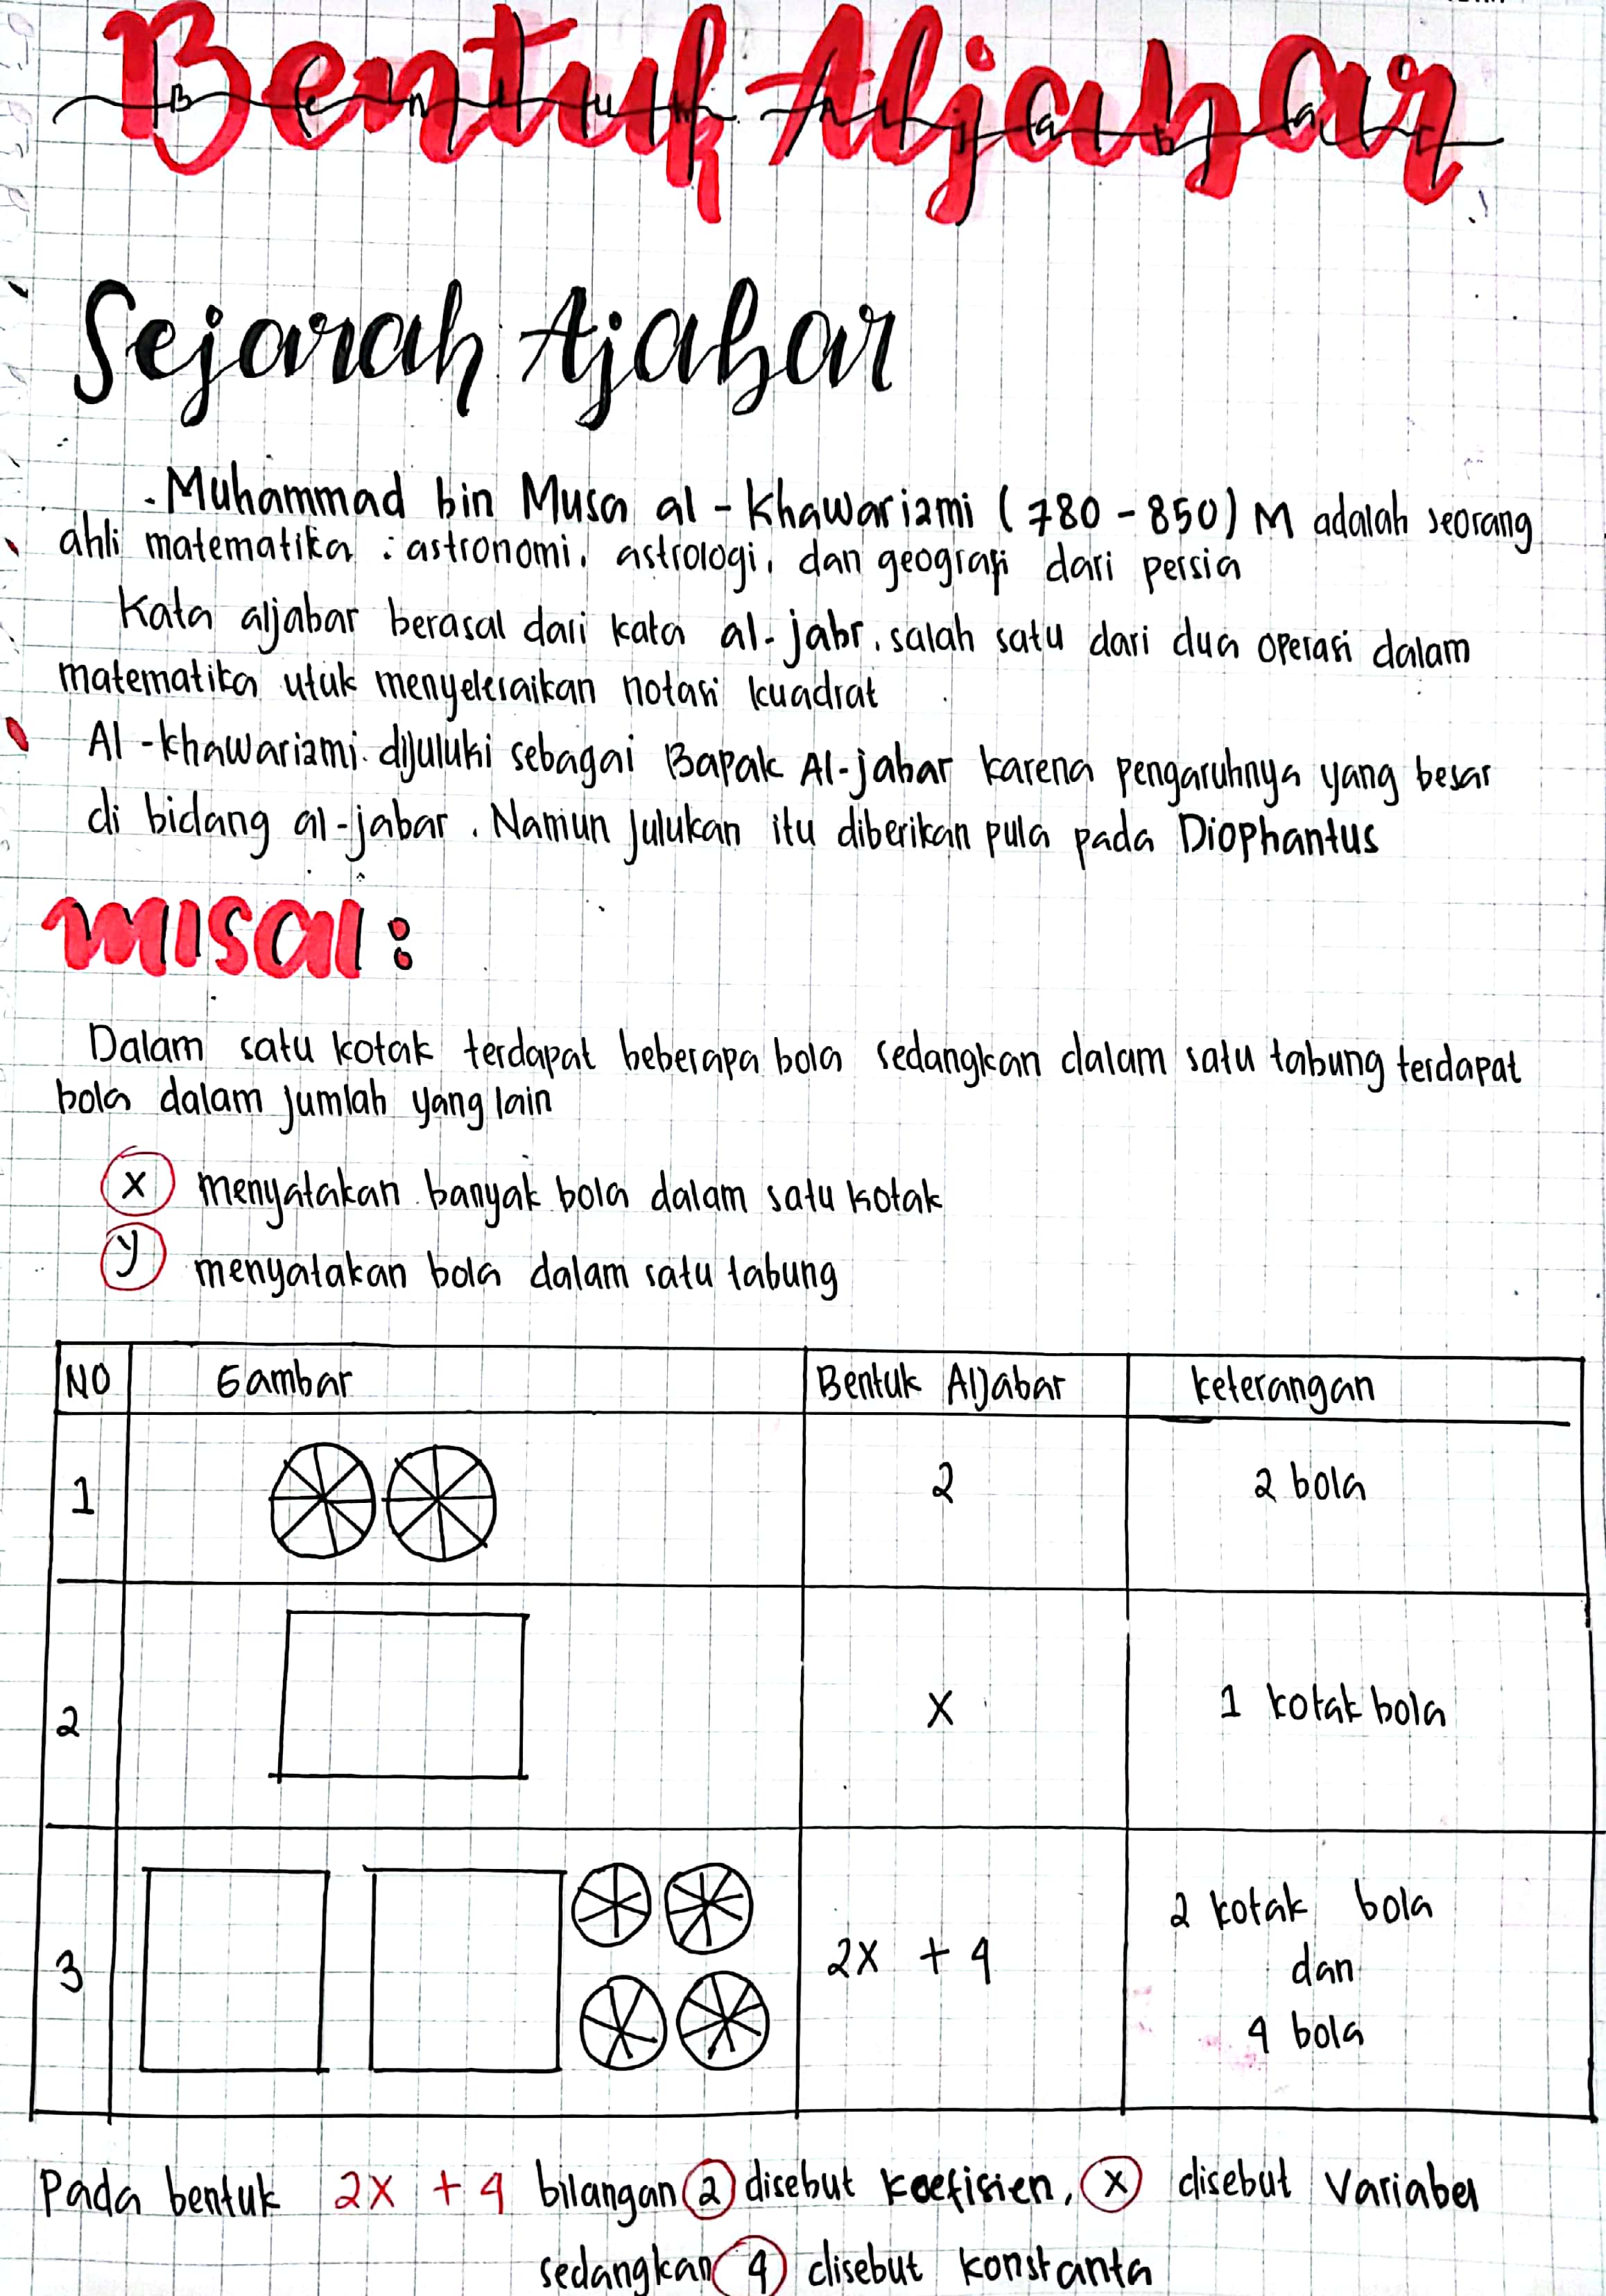 Bentuk Aljabar
Sejarah Ajabar
. Muhammad bin Musa al - Khawarizmi (780 - 850) M adalah seorang
ahli matematika : astronomi, astrologi, dan geografi dari persia
Kata aljabar berasal dari kata al-jabr, salah satu dari dua operasi dalam
matematika utuk menyelesaikan notasi kuadrat
Al -khawarizmi dijuluki sebagai Bapak Al-jabar karena pengaruhnya yang besar
di bidang al-jabar . Namun julukan itu diberikan pula pada Diophantus
misal :
Dalam satu kotak terdapat beberapa bola sedangkan dalam satu tabung terdapat
bola dalam jumlah yang lain
x menyatakan banyak bola dalam satu kotak
y menyatakan bola dalam satu tabung
NO Gambar Bentuk Aljabar keterangan
1 2 2 bola
2 x 1 kotak bola
3 2x + 4 2 kotak bola
dan
4 bola
Pada bentuk 2x + 4 bilangan 2 disebut koefisien, x disebut Variabel
sedangkan 4 disebut konstanta